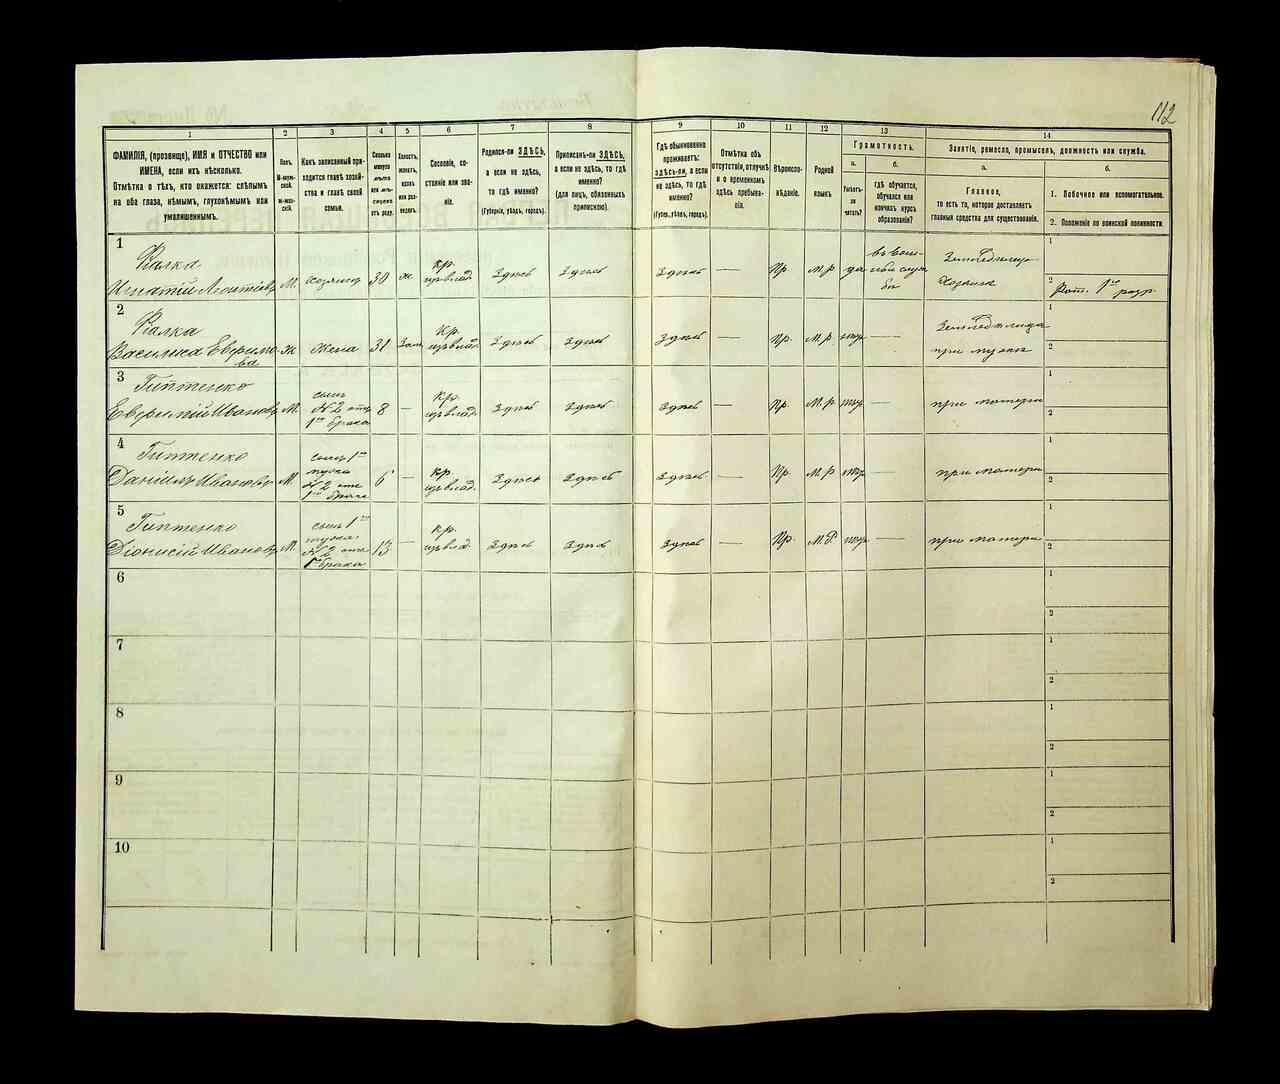 112
1
2
3
4
5
6
7
8
9
10
11
12
13
14
ФАМИЛІЯ, (прозвище), ИМЯ и ОТЧЕСТВО или
ИМЕНА, если ихъ нѣсколько.
Отмѣтка о тѣхъ, кто окажется: слѣпымъ
на оба глаза, нѣмымъ, глухонѣмымъ или
умалишеннымъ.
Полъ.
М-мужской.
Ж-женскій.
Какъ записанный приходится главѣ хозяйства и главѣ своей
семьи.
Сколько
минуло
лѣтъ
или мѣсяцевъ
отъ роду.
Холостъ,
женатъ,
вдовъ
или разведенъ.
Сословіе, состояніе или званіе.
Родился-ли ЗДѢСЬ,
а если не здѣсь,
то гдѣ именно?
(Губернія, уѣздъ, городъ).
Приписанъ-ли ЗДѢСЬ,
а если не здѣсь, то гдѣ
именно?
(для лицъ, обязанныхъ
припискою).
Гдѣ обыкновенно
проживаетъ:
здѣсь-ли, а если
не здѣсь, то гдѣ
именно?
(Губерн., уѣздъ, городъ).
Отмѣтка объ
отсутствіи, отлучкѣ
и о временномъ
здѣсь пребываніи.
Вѣроисповѣданіе.
Родной
языкъ.
Грамотность.
а.
Умѣетъ-ли
читать?
б.
гдѣ обучается,
обучался или
кончилъ курсъ
образованія?
Занятіе, ремесло, промыселъ, должность или служба.
а.
Главное,
то есть то, которое доставляетъ
главныя средства для существованія.
б.
1. Побочное или вспомогательное.
2. Положеніе по воинской повинности
1
Фіалка
Игнатій Леонтіевъ М. хозяинъ 30 ж. Кр. Здѣсь Здѣсь Здѣсь — Пр М.Р да
Земледѣлецъ
хозяинъ
1
2 Рат. 1го разр.
2
Фіалка
Василиса Евфимова Ж Жена 31 Зам. Кр. Здѣсь Здѣсь Здѣсь — Пр. М.Р —
при мужѣ
1
2
3
Гиптенко
Евфимій Ивановъ М. сынъ №2 отъ 1го брака 8 — Кр. Здѣсь Здѣсь Здѣсь — Пр. М.Р —
при матери
1
2
4
Гиптенко
Даніилъ Ивановъ М. сынъ 1го мужа №2 отъ 1го брака 6 — Кр Здѣсь Здѣсь Здѣсь — Пр М.Р —
при матери
1
2
5
Гиптенко
Діонисій Ивановъ М. сынъ 1го мужа №2 отъ 1го брака 13 — Кр. Здѣсь Здѣсь Здѣсь — Пр. М.Р. —
при матери
1
2
6
1
2
7
1
2
8
1
2
9
1
2
10
1
2